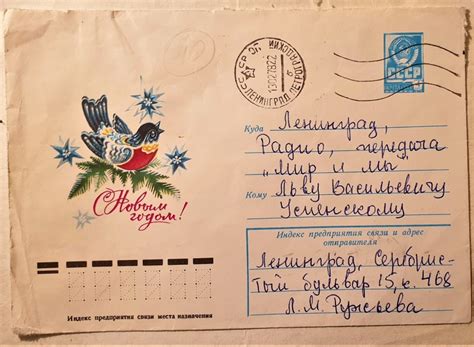 СССР
ЛЕНИНГРАД ПЕТРОГРАДСКИЙ
СССР
Куда Ленинград,
Радио, передача
"Мир и мы"
Кому Льву Васильевичу
Успенскому
С Новым
годом!
Индекс предприятия связи и адрес
отправителя
Ленинград, Серебрис-
тый бульвар 15, к. 468
Л. М. Ружьева
Индекс предприятия связи места назначения